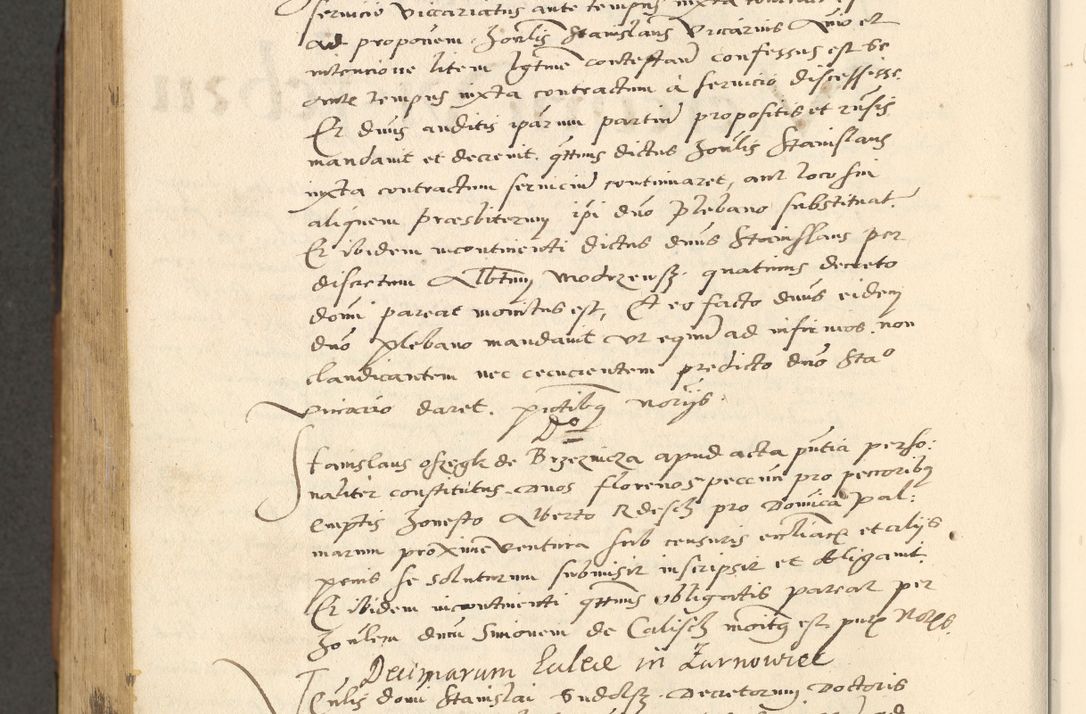 servicio viccariatus ante tempus iuxta
ad proponem Honlis Stanislaus Vicarius Anio et
intencione litem lgtme contestan confessus est se
ante tempus iuxta contractum à servicio discessisse
Et dnus auditis iparum partiu propositis et rnsis
mandavit et decrevit qtnus dictus Honlis Stanislaus
iuxta contractum serviciu continuaret, aut loco sui
aliquem præsbiterum ipi dno Plebano substituat
Et ibidem incontinenti dictus dnus Stanislaus per
discretum Albtum Modrzensz quatinus decreto
domi pareat monitus est, Et eo facto dnus eidem
dno plebano mandavit ut equm ad infirmos non
claudicantem nec cecucientem predicto dno Stao
vicario daret. pntibus notrijs
Do
Stanislaus Oszegk de Brzeznicza apud acta pntia perso:
naliter constitutus duos florenos peccun pro peccoribus
emptis Honesto Alberto Rdesch pro Domica Pal:
marum proxime ventura sub censuris ecliacs et alijs
penis se soluturum submisit inscripsit et obligavit
Et ibidem incontinenti qtnus obligatis pareat per
Honlem dnum Simonem de Calisch monitus est pntz Notrs.
Decimarum Luleie in Zarnowiec
Cnlis domi Stanislai Sudolsz Decretorum Doctoris